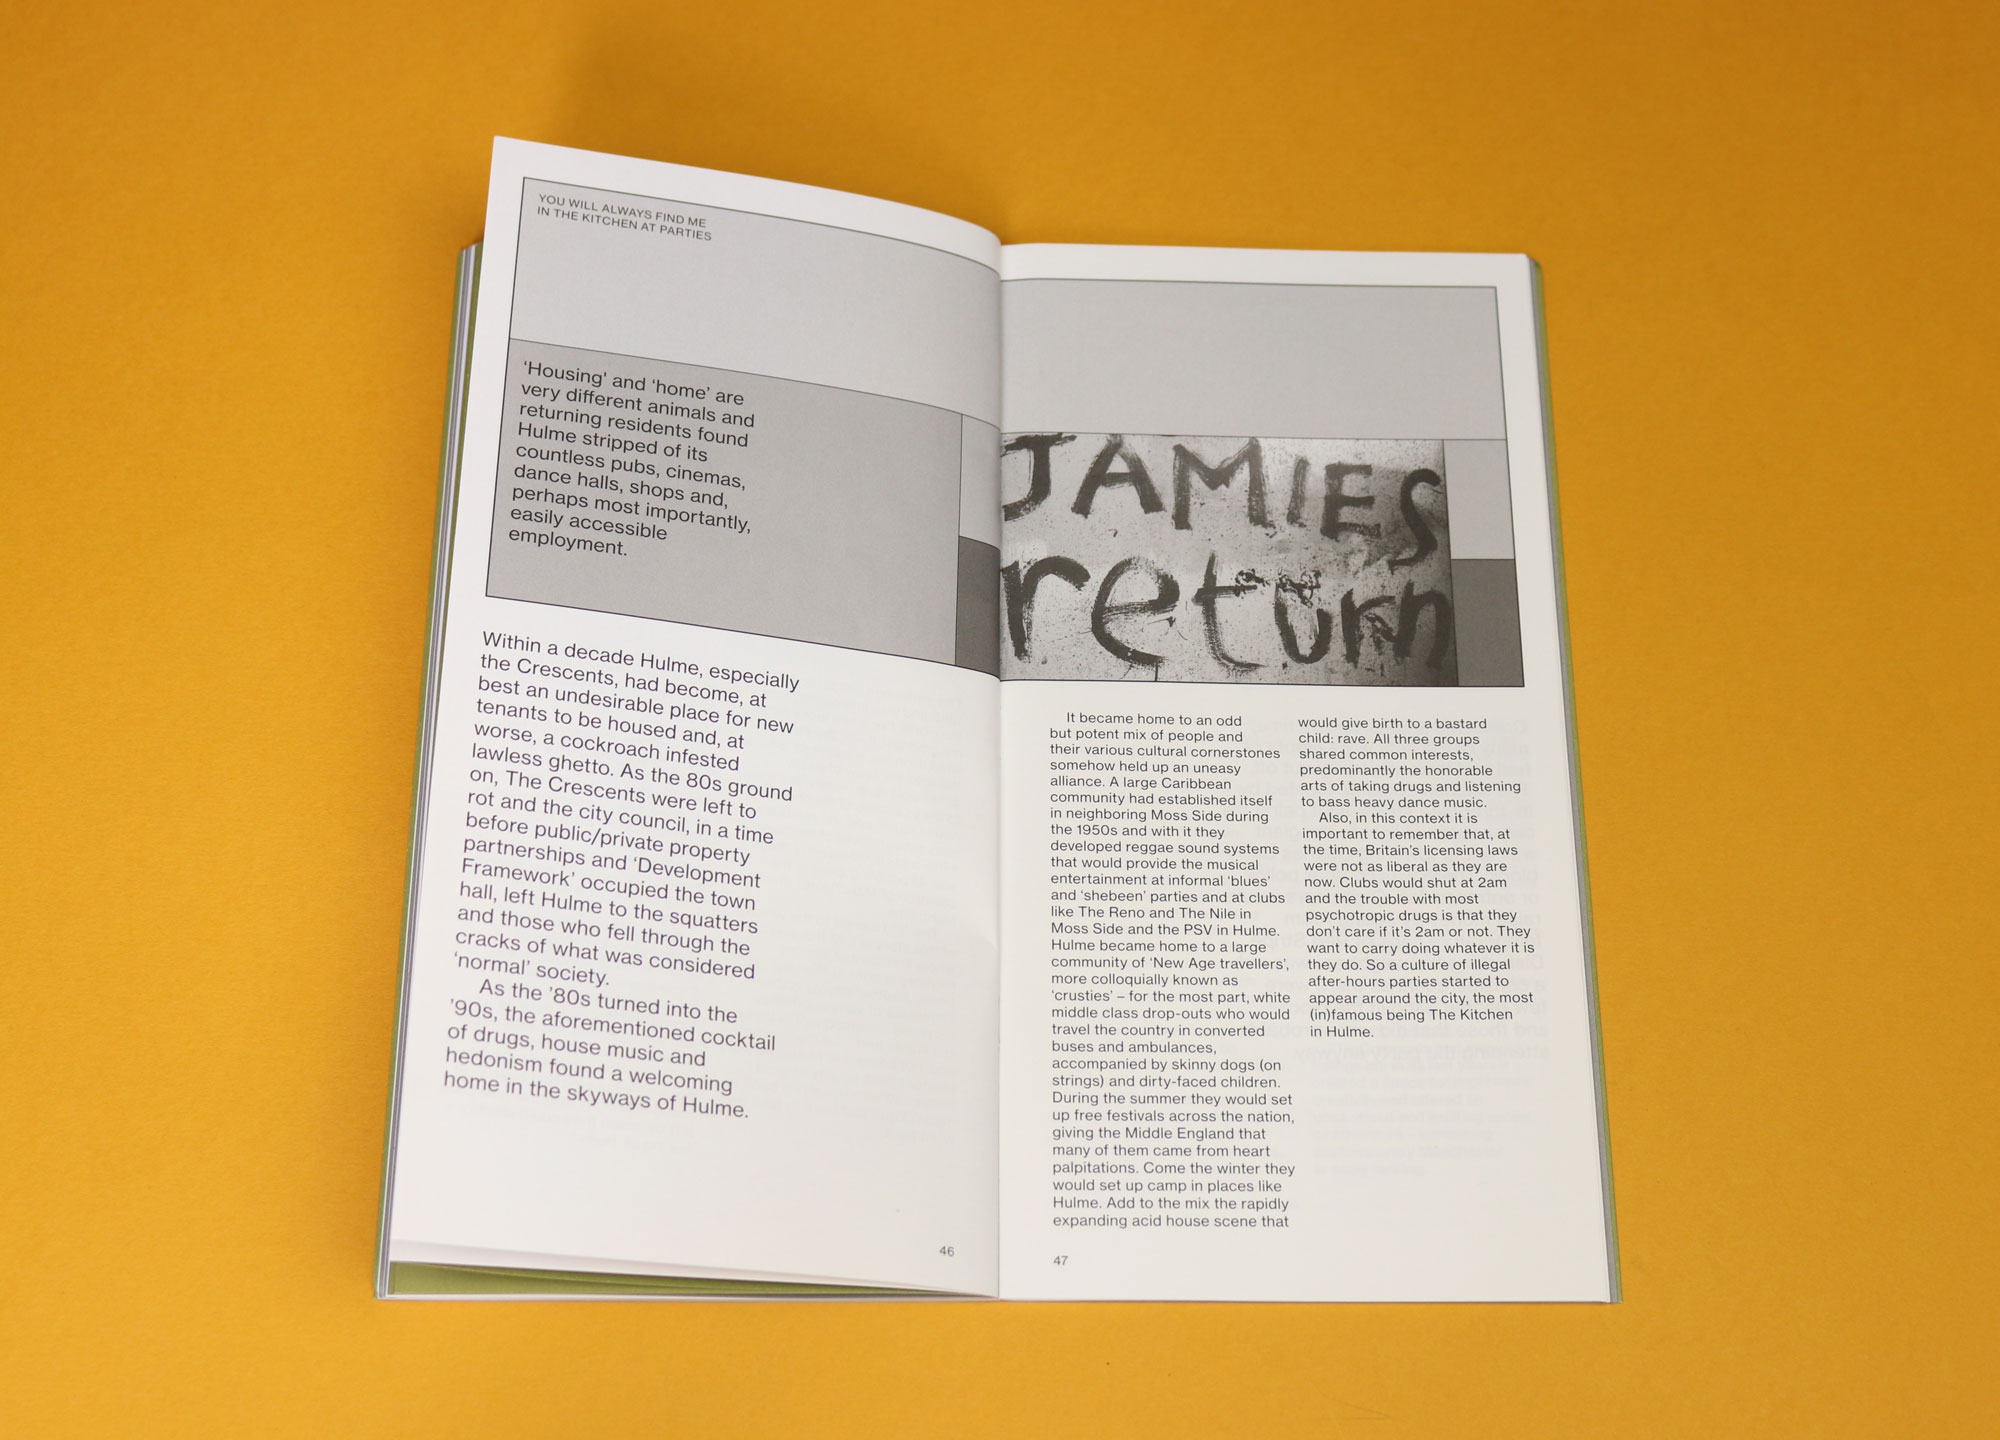 YOU WILL ALWAYS FIND ME
IN THE KITCHEN AT PARTIES
‘Housing' and ‘home’ are
very different animals and
returning residents found
Hulme stripped of its
countless pubs, cinemas,
dance halls, shops and,
perhaps most importantly,
easily accessible
employment.
Within a decade Hulme, especially
the Crescents, had become, at
best an undesirable place for new
tenants to be housed and, at
worse, a cockroach infested
lawless ghetto. As the 80s ground
on, The Crescents were left to
rot and the city council, in a time
before public/private property
partnerships and ‘Development
Framework’ occupied the town
hall, left Hulme to the squatters
and those who fell through the
cracks of what was considered
‘normal’ society.
As the ’80s turned into the
’90s, the aforementioned cocktail
of drugs, house music and
hedonism found a welcoming
home in the skyways of Hulme.
46
JAMIES
return
It became home to an odd
but potent mix of people and
their various cultural cornerstones
somehow held up an uneasy
alliance. A large Caribbean
community had established itself
in neighboring Moss Side during
the 1950s and with it they
developed reggae sound systems
that would provide the musical
entertainment at informal ‘blues’
and ‘shebeen’ parties and at clubs
like The Reno and The Nile in
Moss Side and the PSV in Hulme.
Hulme became home to a large
community of ‘New Age travellers’,
more colloquially known as
‘crusties’ – for the most part, white
middle class drop-outs who would
travel the country in converted
buses and ambulances,
accompanied by skinny dogs (on
strings) and dirty-faced children.
During the summer they would set
up free festivals across the nation,
giving the Middle England that
many of them came from heart
palpitations. Come the winter they
would set up camp in places like
Hulme. Add to the mix the rapidly
expanding acid house scene that
would give birth to a bastard
child: rave. All three groups
shared common interests,
predominantly the honorable
arts of taking drugs and listening
to bass heavy dance music.
Also, in this context it is
important to remember that, at
the time, Britain’s licensing laws
were not as liberal as they are
now. Clubs would shut at 2am
and the trouble with most
psychotropic drugs is that they
don’t care if it’s 2am or not. They
want to carry doing whatever it is
they do. So a culture of illegal
after-hours parties started to
appear around the city, the most
(in)famous being The Kitchen
in Hulme.
47